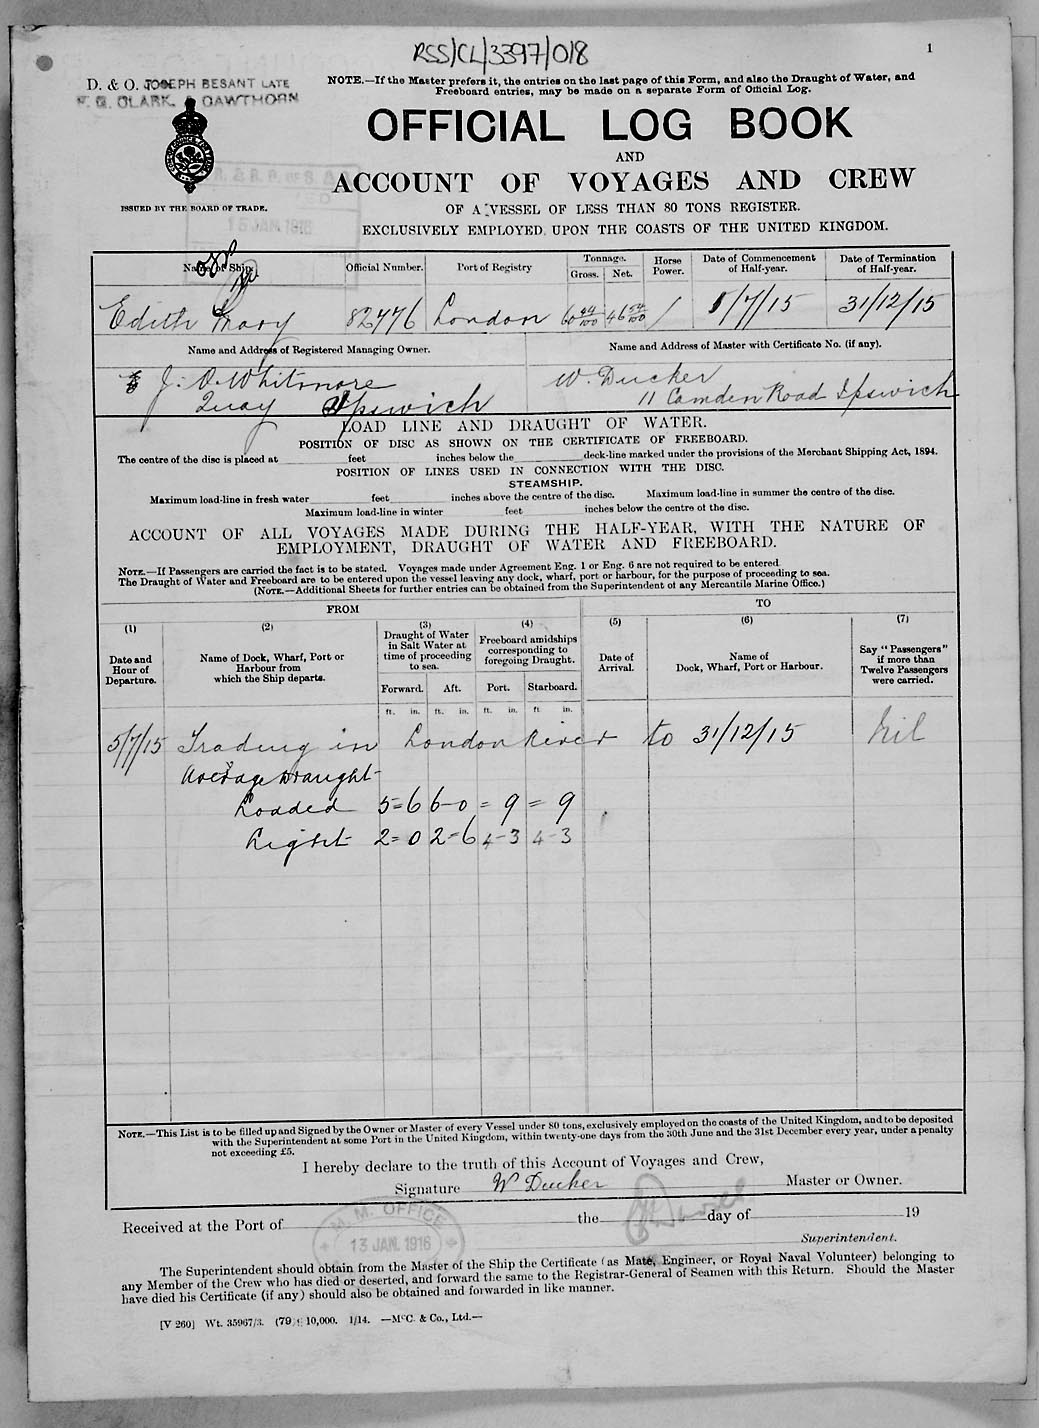 RSS/CL/3397/018
1
D. & O. JOSEPH BESANT LATE
F. G. CLARK. & CAWTHORN
NOTE.—If the Master prefers it, the entries on the last page of this Form, and also the Draught of Water, and
Freeboard entries, may be made on a separate Form of Official Log.
OFFICIAL LOG BOOK
AND
ACCOUNT OF VOYAGES AND CREW
OF A VESSEL OF LESS THAN 80 TONS REGISTER.
EXCLUSIVELY EMPLOYED UPON THE COASTS OF THE UNITED KINGDOM.
ISSUED BY THE BOARD OF TRADE.
15 JAN. 1916
Name of Ship. Official Number. Port of Registry Tonnage. Gross. Net. Horse Power. Date of Commencement of Half-year. Date of Termination of Half-year.
Edith Mary 82776 London 60 44/100 46 54/100 / 1/7/15 31/12/15
Name and Address of Registered Managing Owner. Name and Address of Master with Certificate No. (if any).
J. O. Whitmore W. Ducker
Quay Ipswich 11 Camden Road Ipswich
LOAD LINE AND DRAUGHT OF WATER.
POSITION OF DISC AS SHOWN ON THE CERTIFICATE OF FREEBOARD.
The centre of the disc is placed at feet inches below the deck-line marked under the provisions of the Merchant Shipping Act, 1894.
POSITION OF LINES USED IN CONNECTION WITH THE DISC.
STEAMSHIP.
Maximum load-line in fresh water feet inches above the centre of the disc. Maximum load-line in summer the centre of the disc.
Maximum load-line in winter feet inches below the centre of the disc.
ACCOUNT OF ALL VOYAGES MADE DURING THE HALF-YEAR, WITH THE NATURE OF
EMPLOYMENT, DRAUGHT OF WATER AND FREEBOARD.
NOTE.—If Passengers are carried the fact is to be stated. Voyages made under Agreement Eng. 1 or Eng. 6 are not required to be entered
The Draught of Water and Freeboard are to be entered upon the vessel leaving any dock, wharf, port or harbour, for the purpose of proceeding to sea.
(NOTE.—Additional Sheets for further entries can be obtained from the Superintendent of any Mercantile Marine Office.)
FROM TO
(1) (2) (3) (4) (5) (6) (7)
Date and Hour of Departure.
Name of Dock, Wharf, Port or Harbour from which the Ship departs.
Draught of Water in Salt Water at time of proceeding to sea.
Freeboard amidships corresponding to foregoing Draught.
Date of Arrival.
Name of Dock, Wharf, Port or Harbour.
Say "Passengers" if more than Twelve Passengers were carried.
Forward. Aft. Port. Starboard.
ft. in. ft. in. ft. in. ft in.
5/7/15 Trading in London River to 31/12/15 Nil
Average Draught
Loaded 5=6 6-0 = 9 = 9
Light 2=0 2-6 4-3 4-3
NOTE.—This List is to be filled up and Signed by the Owner or Master of every Vessel under 80 tons, exclusively employed on the coasts of the United Kingdom, and to be deposited
with the Superintendent at some Port in the United Kingdom, within twenty-one days from the 30th June and the 31st December every year, under a penalty
not exceeding £5.
I hereby declare to the truth of this Account of Voyages and Crew,
Signature W Ducker Master or Owner.
Received at the Port of the day of 19
M. M. OFFICE
13 JAN. 1916
Superintendent.
The Superintendent should obtain from the Master of the Ship the Certificate (as Mate, Engineer, or Royal Naval Volunteer) belonging to
any Member of the Crew who has died or deserted, and forward the same to the Registrar-General of Seamen with this Return. Should the Master
have died his Certificate (if any) should also be obtained and forwarded in like manner.
[V 260] Wt. 35967/3. (79) 10,000. 1/14. —McC. & Co., Ltd.—